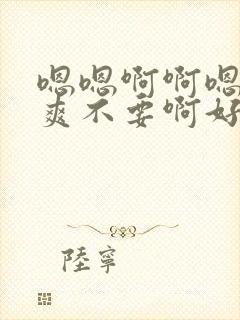 嗯嗯啊啊嗯
爽不要啊好
陸寧